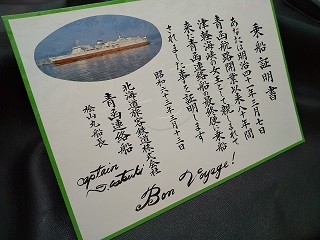 乗船証明書
あなたは明治四十一年三月七日
青函航路開業以来八十年間
津軽海峡の女王として親しまれて
来た青函連絡船の最終便に乗船
されました事を証明します
昭和六十三年三月十三日
北海道旅客鉄道株式会社
青函連絡船
桧山丸船長
Captain
Bon Voyage!